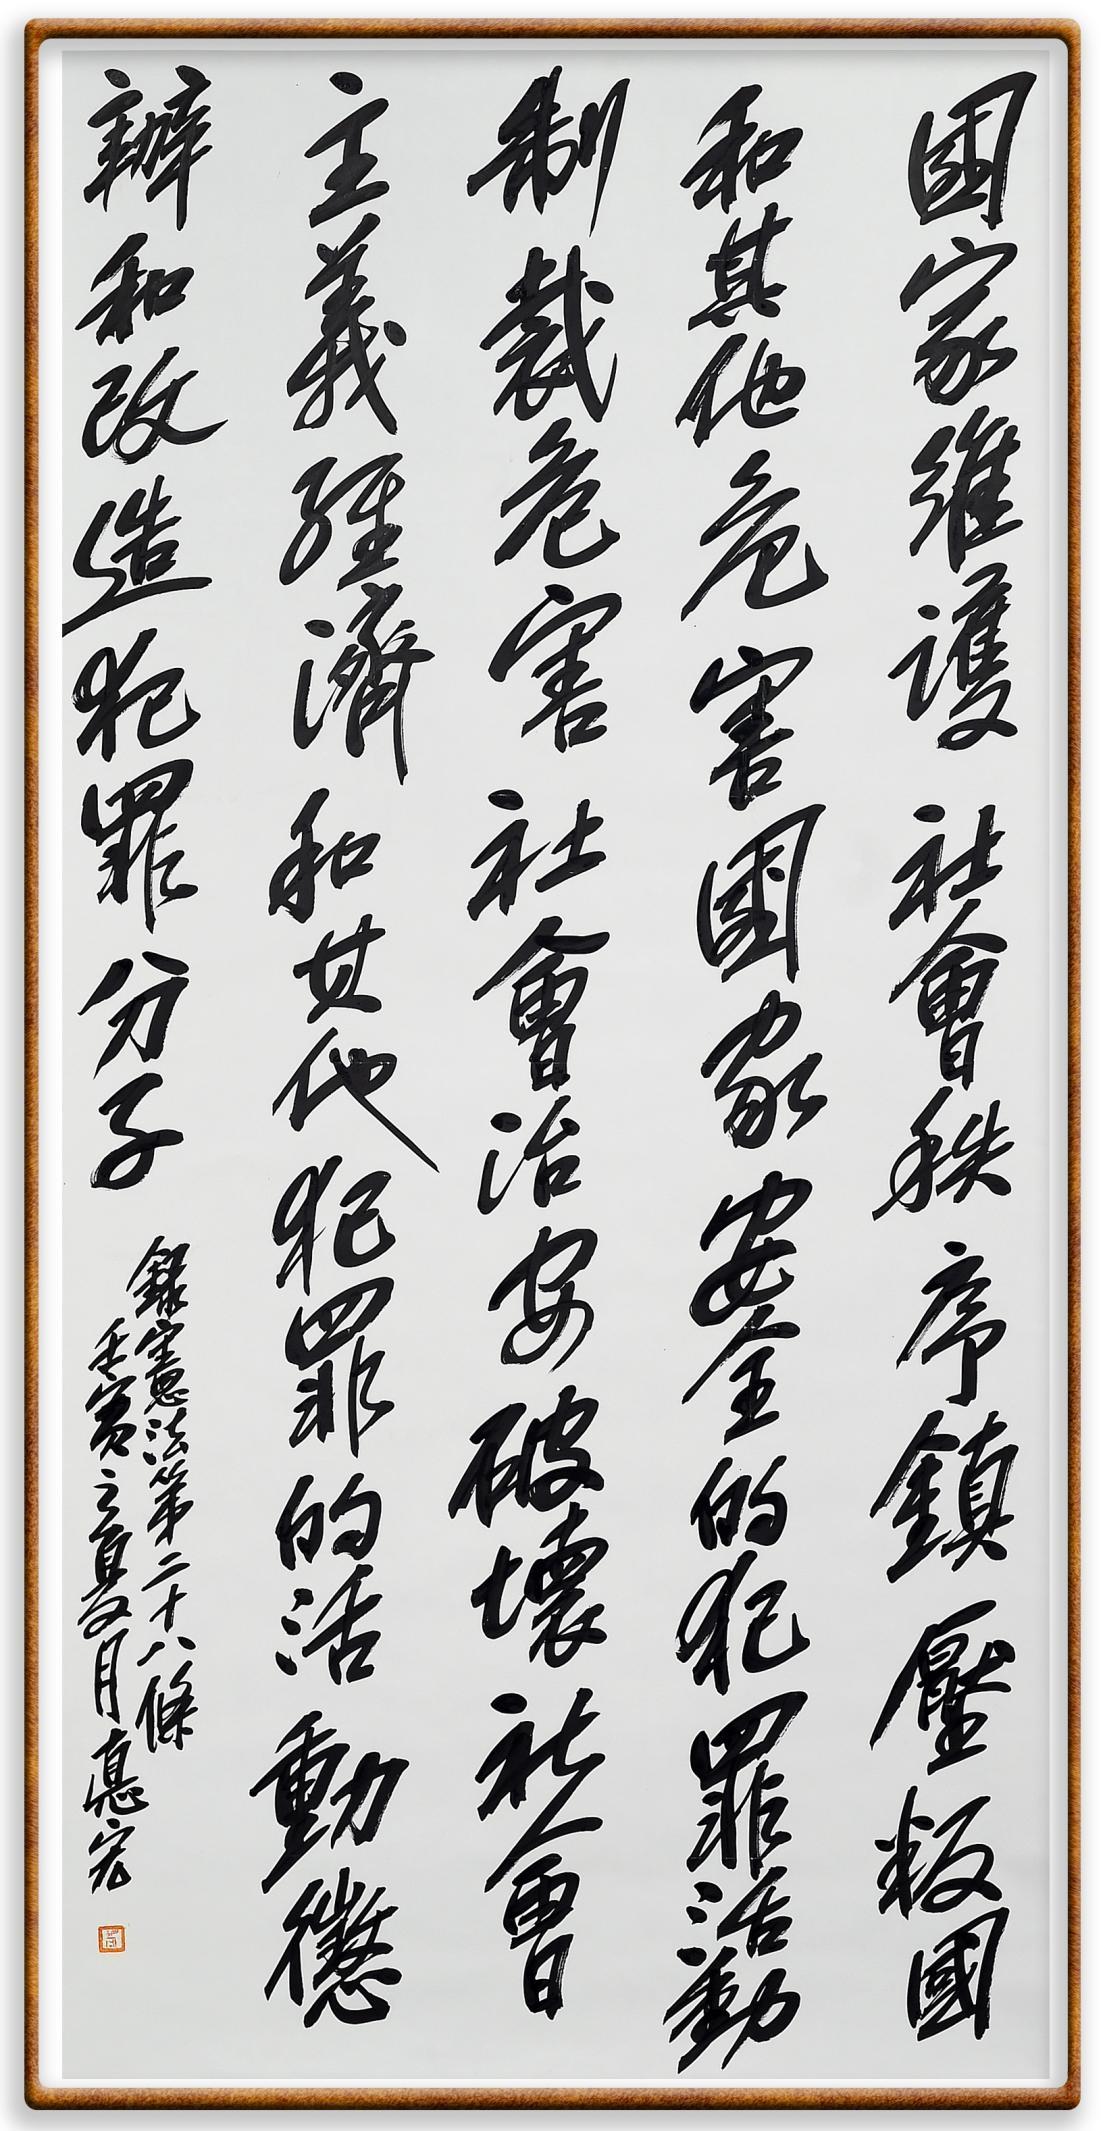 國家維護社會秩序鎮壓叛國
和其他危害國家安全的犯罪活動
制裁危害社會治安破壞社會
主義經濟和其他犯罪的活動懲
辦和改造犯罪分子
錄憲法第二十八條
壬寅之夏月惪宏